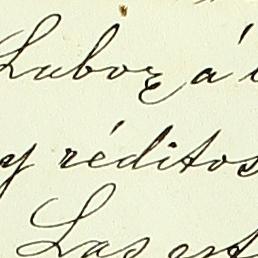 Luboz á
y réditos
Las est